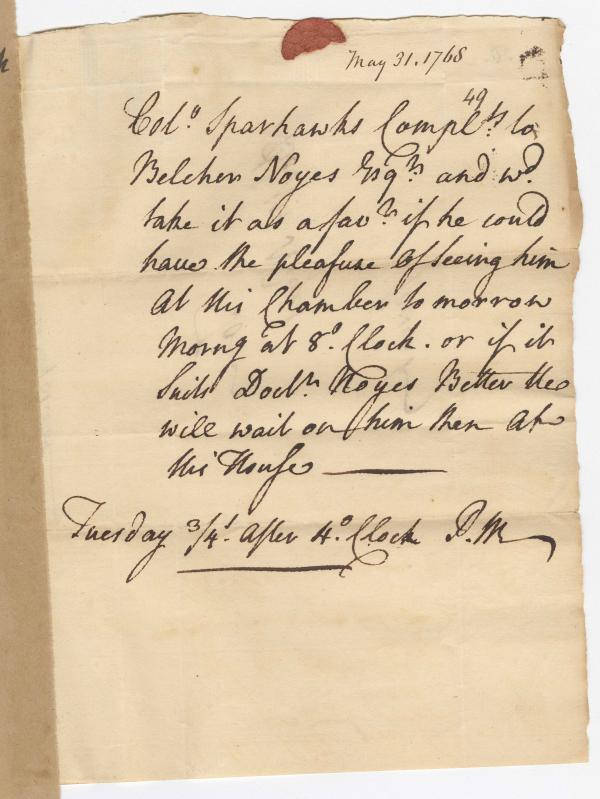 May 31. 1768
49
Colo. Sparhawks Complts. to
Belcher Noyes Esqr. and wd.
take it as a favr. if he could
have the pleasure of seeing him
at his Chamber to morrow
Morng at 8o. Clock. or if it
Suits Doctr. Noyes Better He
will wait on him then At
His House
Tuesday 3/4s. after 4o. Clock P.M